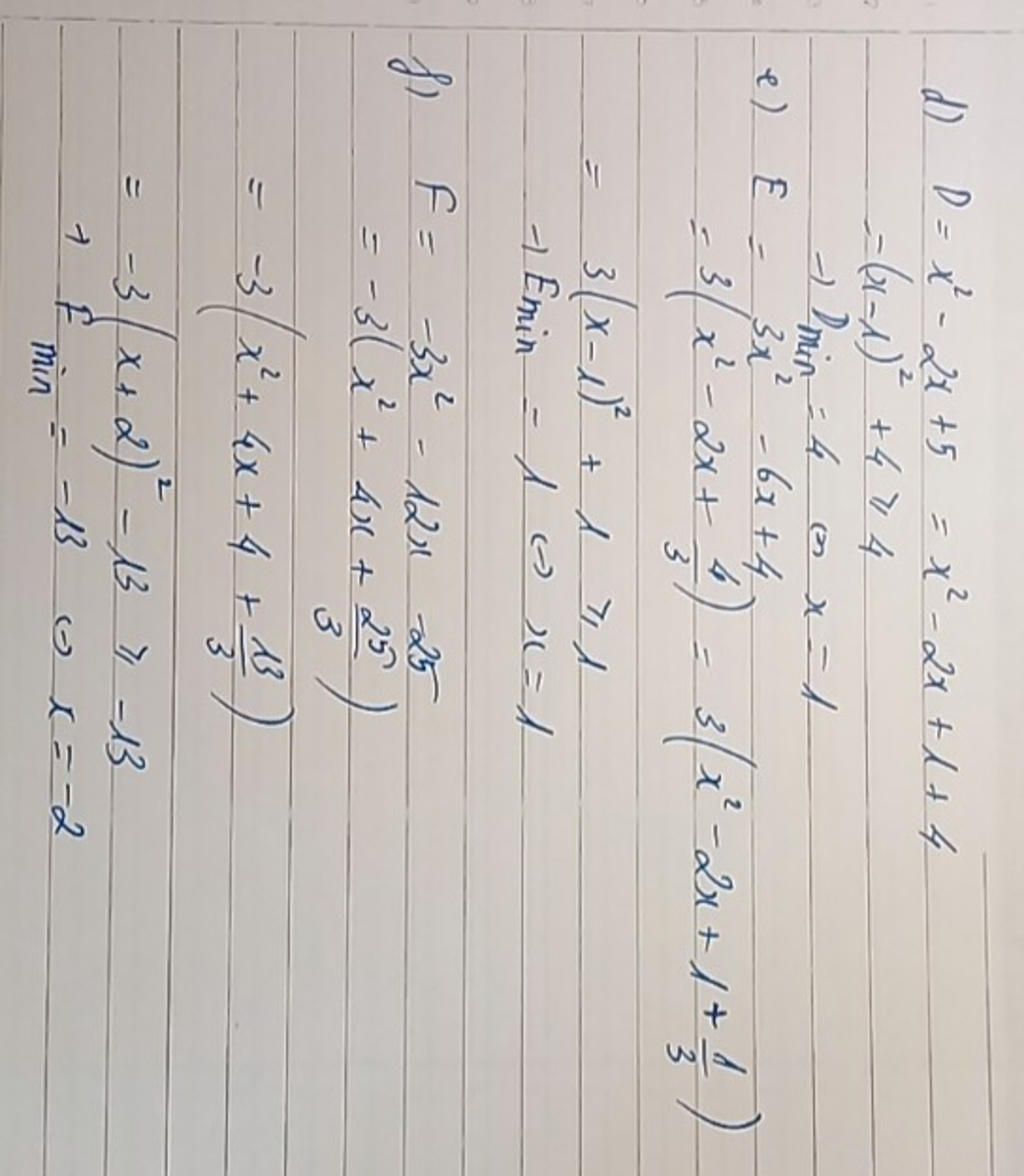 d) D = x² - 2x + 5 = x² - 2x + 1 + 4
= (x - 1)² + 4 ≥ 4
→ Dmin = 4 ⇔ x = 1
e) E = 3x² - 6x + 4
= 3(x² - 2x + 4/3) = 3(x² - 2x + 1 + 1/3)
= 3(x - 1)² + 1 ≥ 1
→ Emin = 1 ⇔ x = 1
f) F = -3x² - 12x - 25
= -3(x² + 4x + 25/3)
= -3(x² + 4x + 4 + 13/3)
= -3(x + 2)² - 13 ≥ -13
→ Fmin = -13 ⇔ x = -2